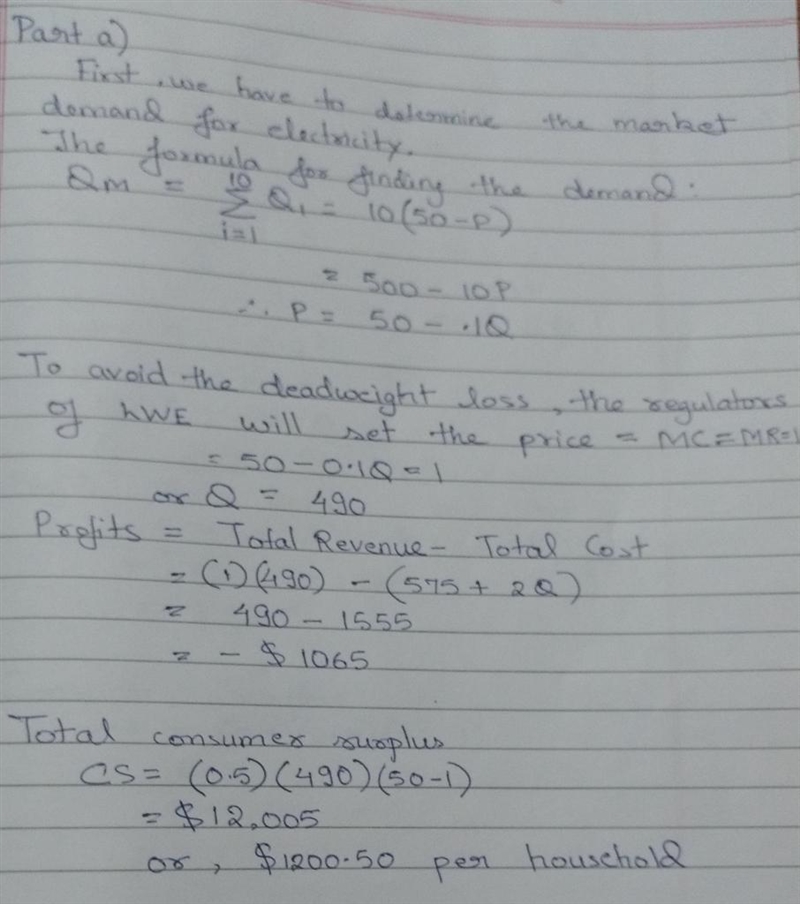 Part a)
First, we have to determine the market
demand for electricity.
The formula for finding the demand:
QM = 10 Σ i=1 Q1 = 10(50-P)
= 500 - 10P
∴ P = 50 - .1Q
To avoid the deadweight loss, the regulators
of kWE will set the price = MC = MR = 1
= 50 - 0.1Q = 1
or Q = 490
Profits = Total Revenue - Total Cost
= (1)(490) - (575 + 2Q)
= 490 - 1555
= - $ 1065
Total consumer surplus
CS = (0.5)(490)(50-1)
= $12,005
or, $1200.50 per household